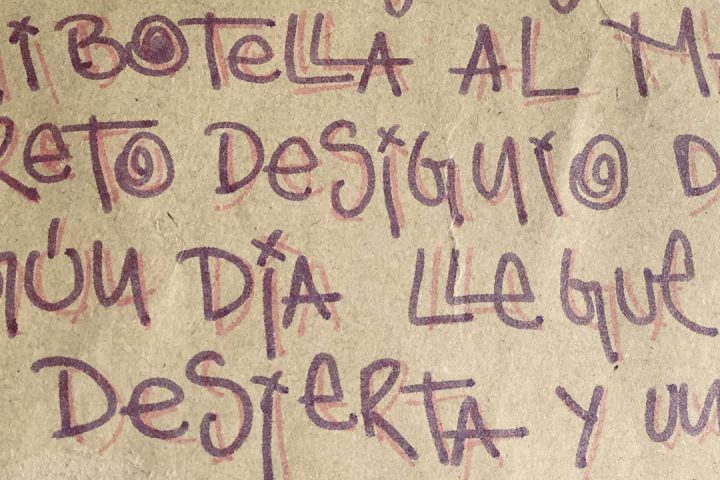 i BOTeLLA AL MA
ReTO DeSiGNiO D
GÚN DíA LLeGUe
DeSieRTA Y UN